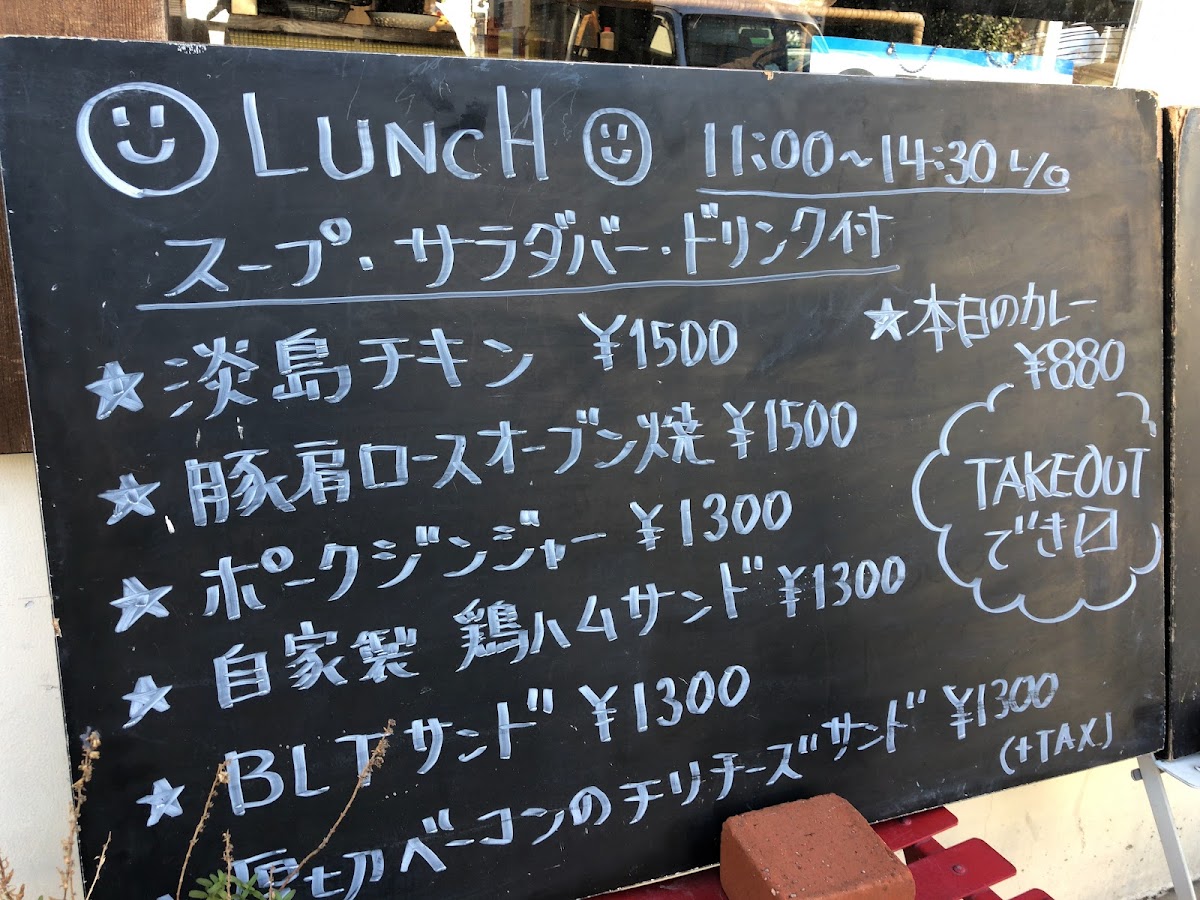 LUNCH 11:00~14:30 L/o
スープ・サラダバー・ドリンク付
★淡島チキン ¥1500
★豚肩ロースオーブン焼 ¥1500
★ポークジンジャー ¥1300
★自家製 鶏ハムサンド ¥1300
★BLTサンド ¥1300
厚切ベーコンのチリチーズサンド ¥1300
(+TAX.)
★本日のカレー
¥880
TAKEOUT
でき〼